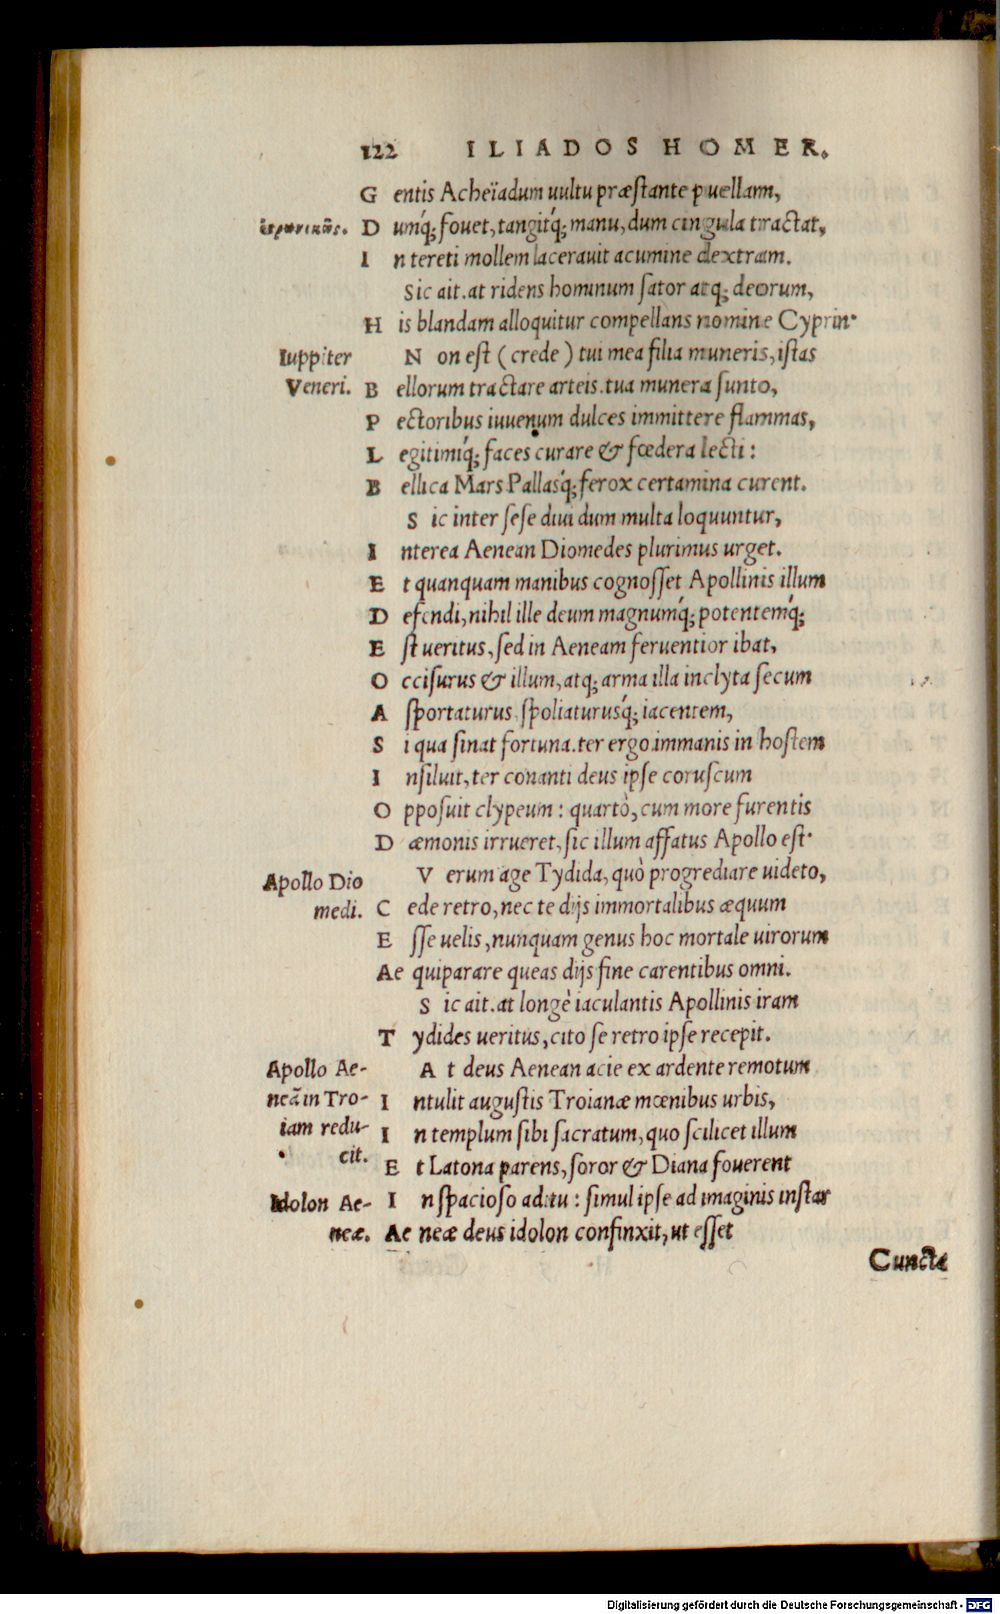 122 ILIADOS HOMER.
Gentis Acheïadum uultu præstante puellam,
Dumq́; fouet, tangitq́; manu, dum cingula tractat,
In tereti mollem lacerauit acumine dextram.
Sic ait. at ridens hominum sator atq; deorum,
His blandam alloquitur compellans nomine Cyprin·
Iuppiter
Veneri.
Non est (crede) tui mea filia muneris, istas
Bellorum tractare arteis. tua munera sunto,
Pectoribus iuuenum dulces immittere flammas,
Legitimiq́; faces curare & fœdera lecti:
Bellica Mars Pallasq́; ferox certamina curent.
Sic inter sese diui dum multa loquuntur,
Interea Aenean Diomedes plurimus urget.
Et quanquam manibus cognosset Apollinis illum
Defendi, nihil ille deum magnumq́; potentemq́;
Est ueritus, sed in Aeneam feruentior ibat,
Occisurus & illum, atq; arma illa inclyta secum
Asportaturus, spoliaturusq́; iacentem,
Si qua sinat fortuna. ter ergo immanis in hostem
Insiluit, ter conanti deus ipse coruscum
Opposuit clypeum: quartò, cum more furentis
Dæmonis irrueret, sic illum affatus Apollo est·
Apollo Dio
medi.
Verum age Tydida, quò progrediare uideto,
Cede retro, nec te dijs immortalibus æquum
Esse uelis, nunquam genus hoc mortale uirorum
Aequiparare queas dijs fine carentibus omni.
Sic ait. at longè iaculantis Apollinis iram
Tydides ueritus, cito se retro ipse recepit.
Apollo Ae-
neā in Tro-
iam redu-
cit.
At deus Aenean acie ex ardente remotum
Intulit augustis Troianæ mœnibus urbis,
In templum sibi sacratum, quo scilicet illum
Et Latona parens, soror & Diana fouerent
Idolon Ae-
neæ.
In spacioso aditu: simul ipse ad imaginis instar
Aeneæ deus idolon confinxit, ut esset
Cunctæ
Digitalisierung gefördert durch die Deutsche Forschungsgemeinschaft - DFG